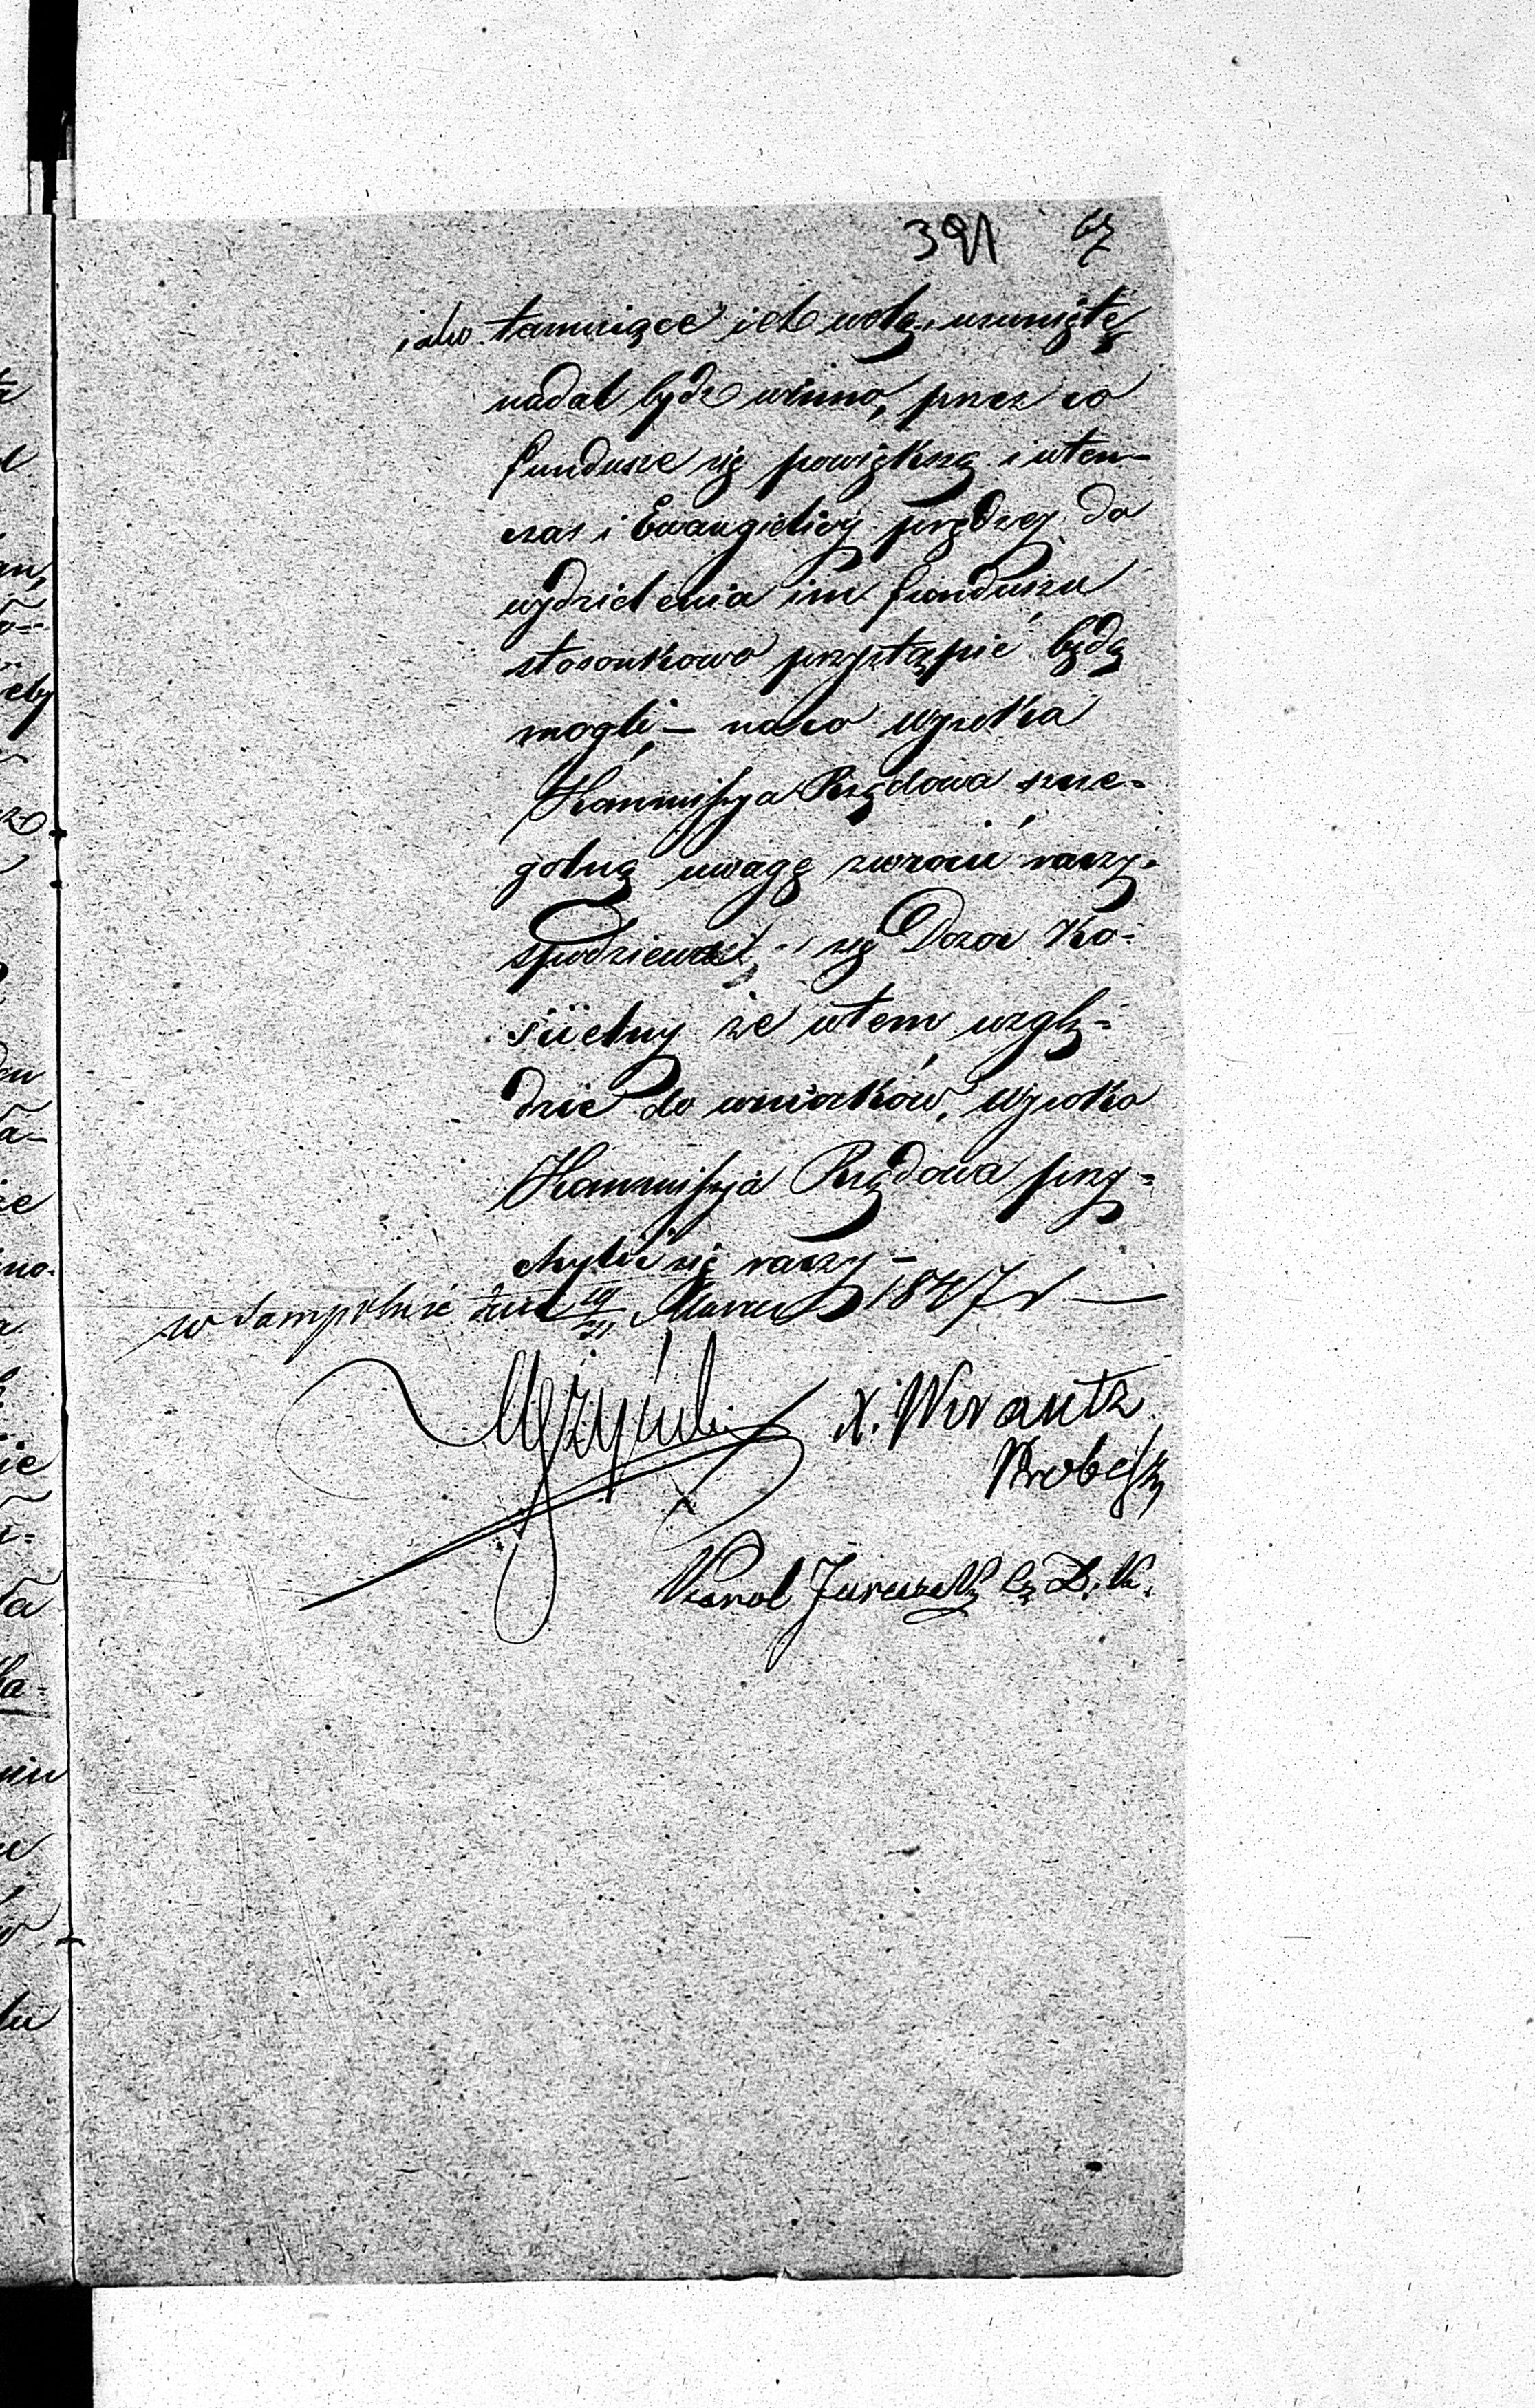 391 67
tamujące ich wolą, usunięte
nadal bydź winno, przez co
fundusze się powiększą i wten-
czas i Ewangielicy prędzey do
wydzielenia im funduszu
stosunkowo przystąpić będą
mogli — na co Wysoka
Kommissya Rządowa szcze-
gólną uwagę zwrócić raczy.
Spodziewa się Dozór Ko-
ścielny że wtem wzglę-
dzie do wniosków, Wysoka
Kommissya Rządowa przy-
chylić się raczy —
w dnia 19/31 Marca 1847 r —
X. Wrantz
Proboszcz
Karol Cz. D. K.